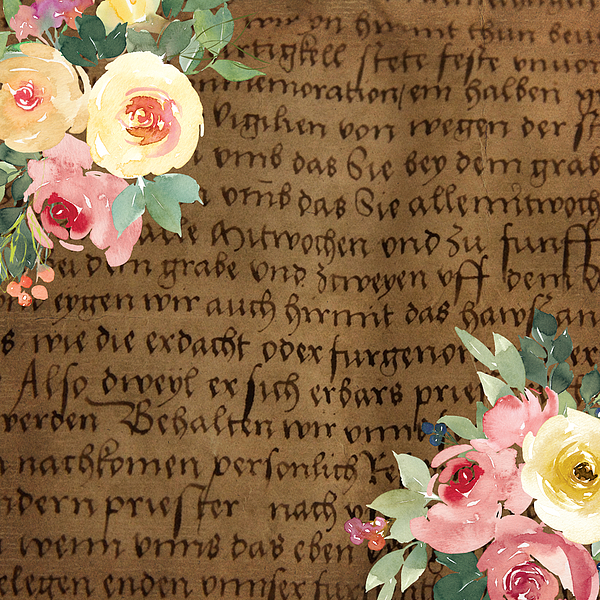 wir an hirmit thun
artigkell stete feste unuor
memoration / ein halben
vigilien von wegen der
vmb das Sie bey dem grabe
vmb das Sie alle mitwoch
alle Mitwochen vnd zu funff
bei dem grabe vnd zweyen vff dem
eygen wir auch hirmit das haws an
s wie die erdacht oder furgenom
Also dweyl er sich erbars prie
werden Behalten wir vnns
n nachkomen personlich
ndern priester nach
wenn vnns das eben
elegen enden vnnser fur